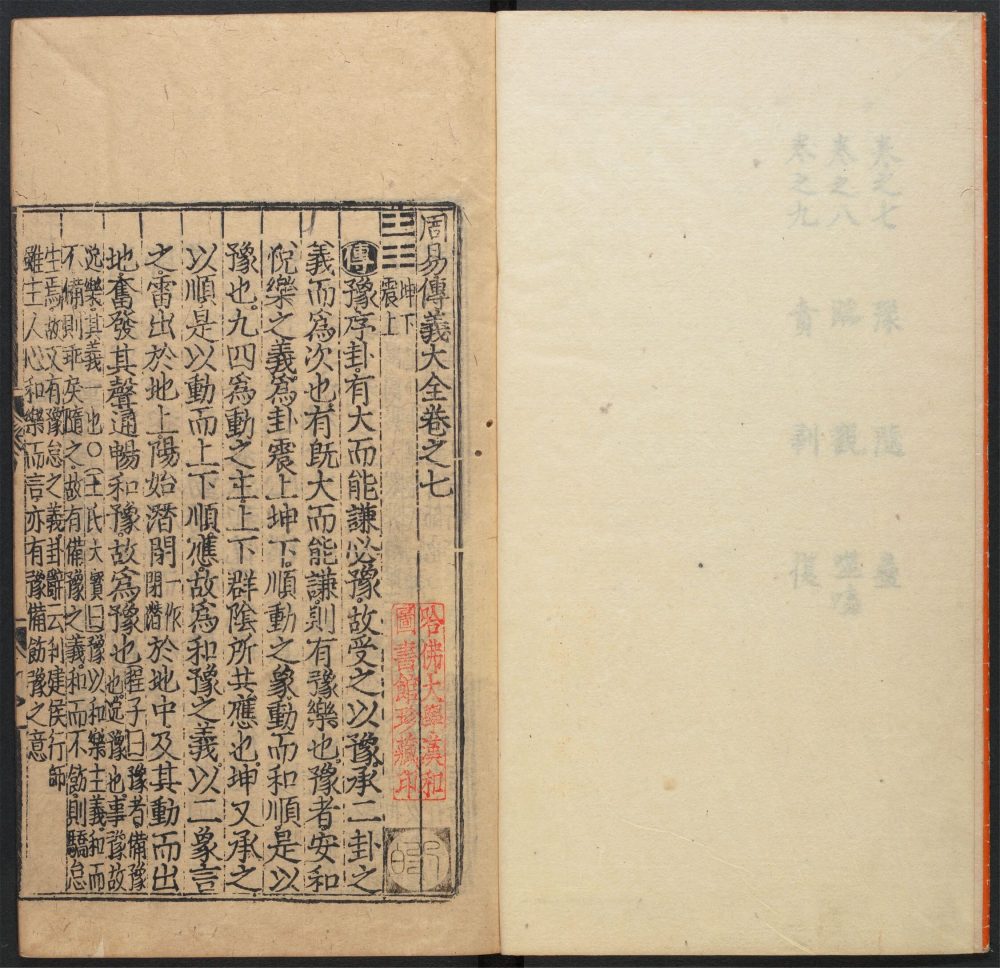 卷之七 豫 隨 蠱
卷之八 臨 觀 噬嗑
卷之九 賁 剝 復
周易傳義大全卷之七
坤下
震上
傳豫序卦有大而能謙必豫故受之以豫承二卦之
義而爲次也有既大而能謙則有豫樂也豫者安和
悅樂之義爲卦震上坤下順動之象動而和順是以
豫也九四爲動之主上下群陰所共應也坤又承之
以順是以動而上下順應故爲和豫之義以二象言
之雷出於地上陽始潛閉一作閉潛於地中及其動而出
地奮發其聲通暢和豫故爲豫也程子曰豫者備豫
也逸豫也事豫故
逸樂其義一也○王氏大寶曰豫以和樂主義和而
不備則乖矣隨之故有備豫之義和而不飭則驕怠
生焉故又有豫怠之義卦辭云利建侯行師
雖主人心和樂而言亦有豫備飭豫之意
哈佛大學漢和
圖書館珍藏印